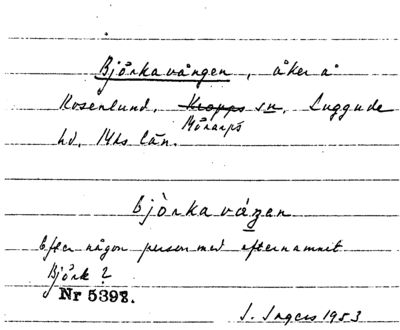 Björkavången, åker å
Rosenlund, Kropps sn, Luggude
Mörarps
hd, Mhs län.
bjö̀rkavåŋen
Efter någon person med efternamnet
Björk?
Nr 5398.
I. Ingers 1953